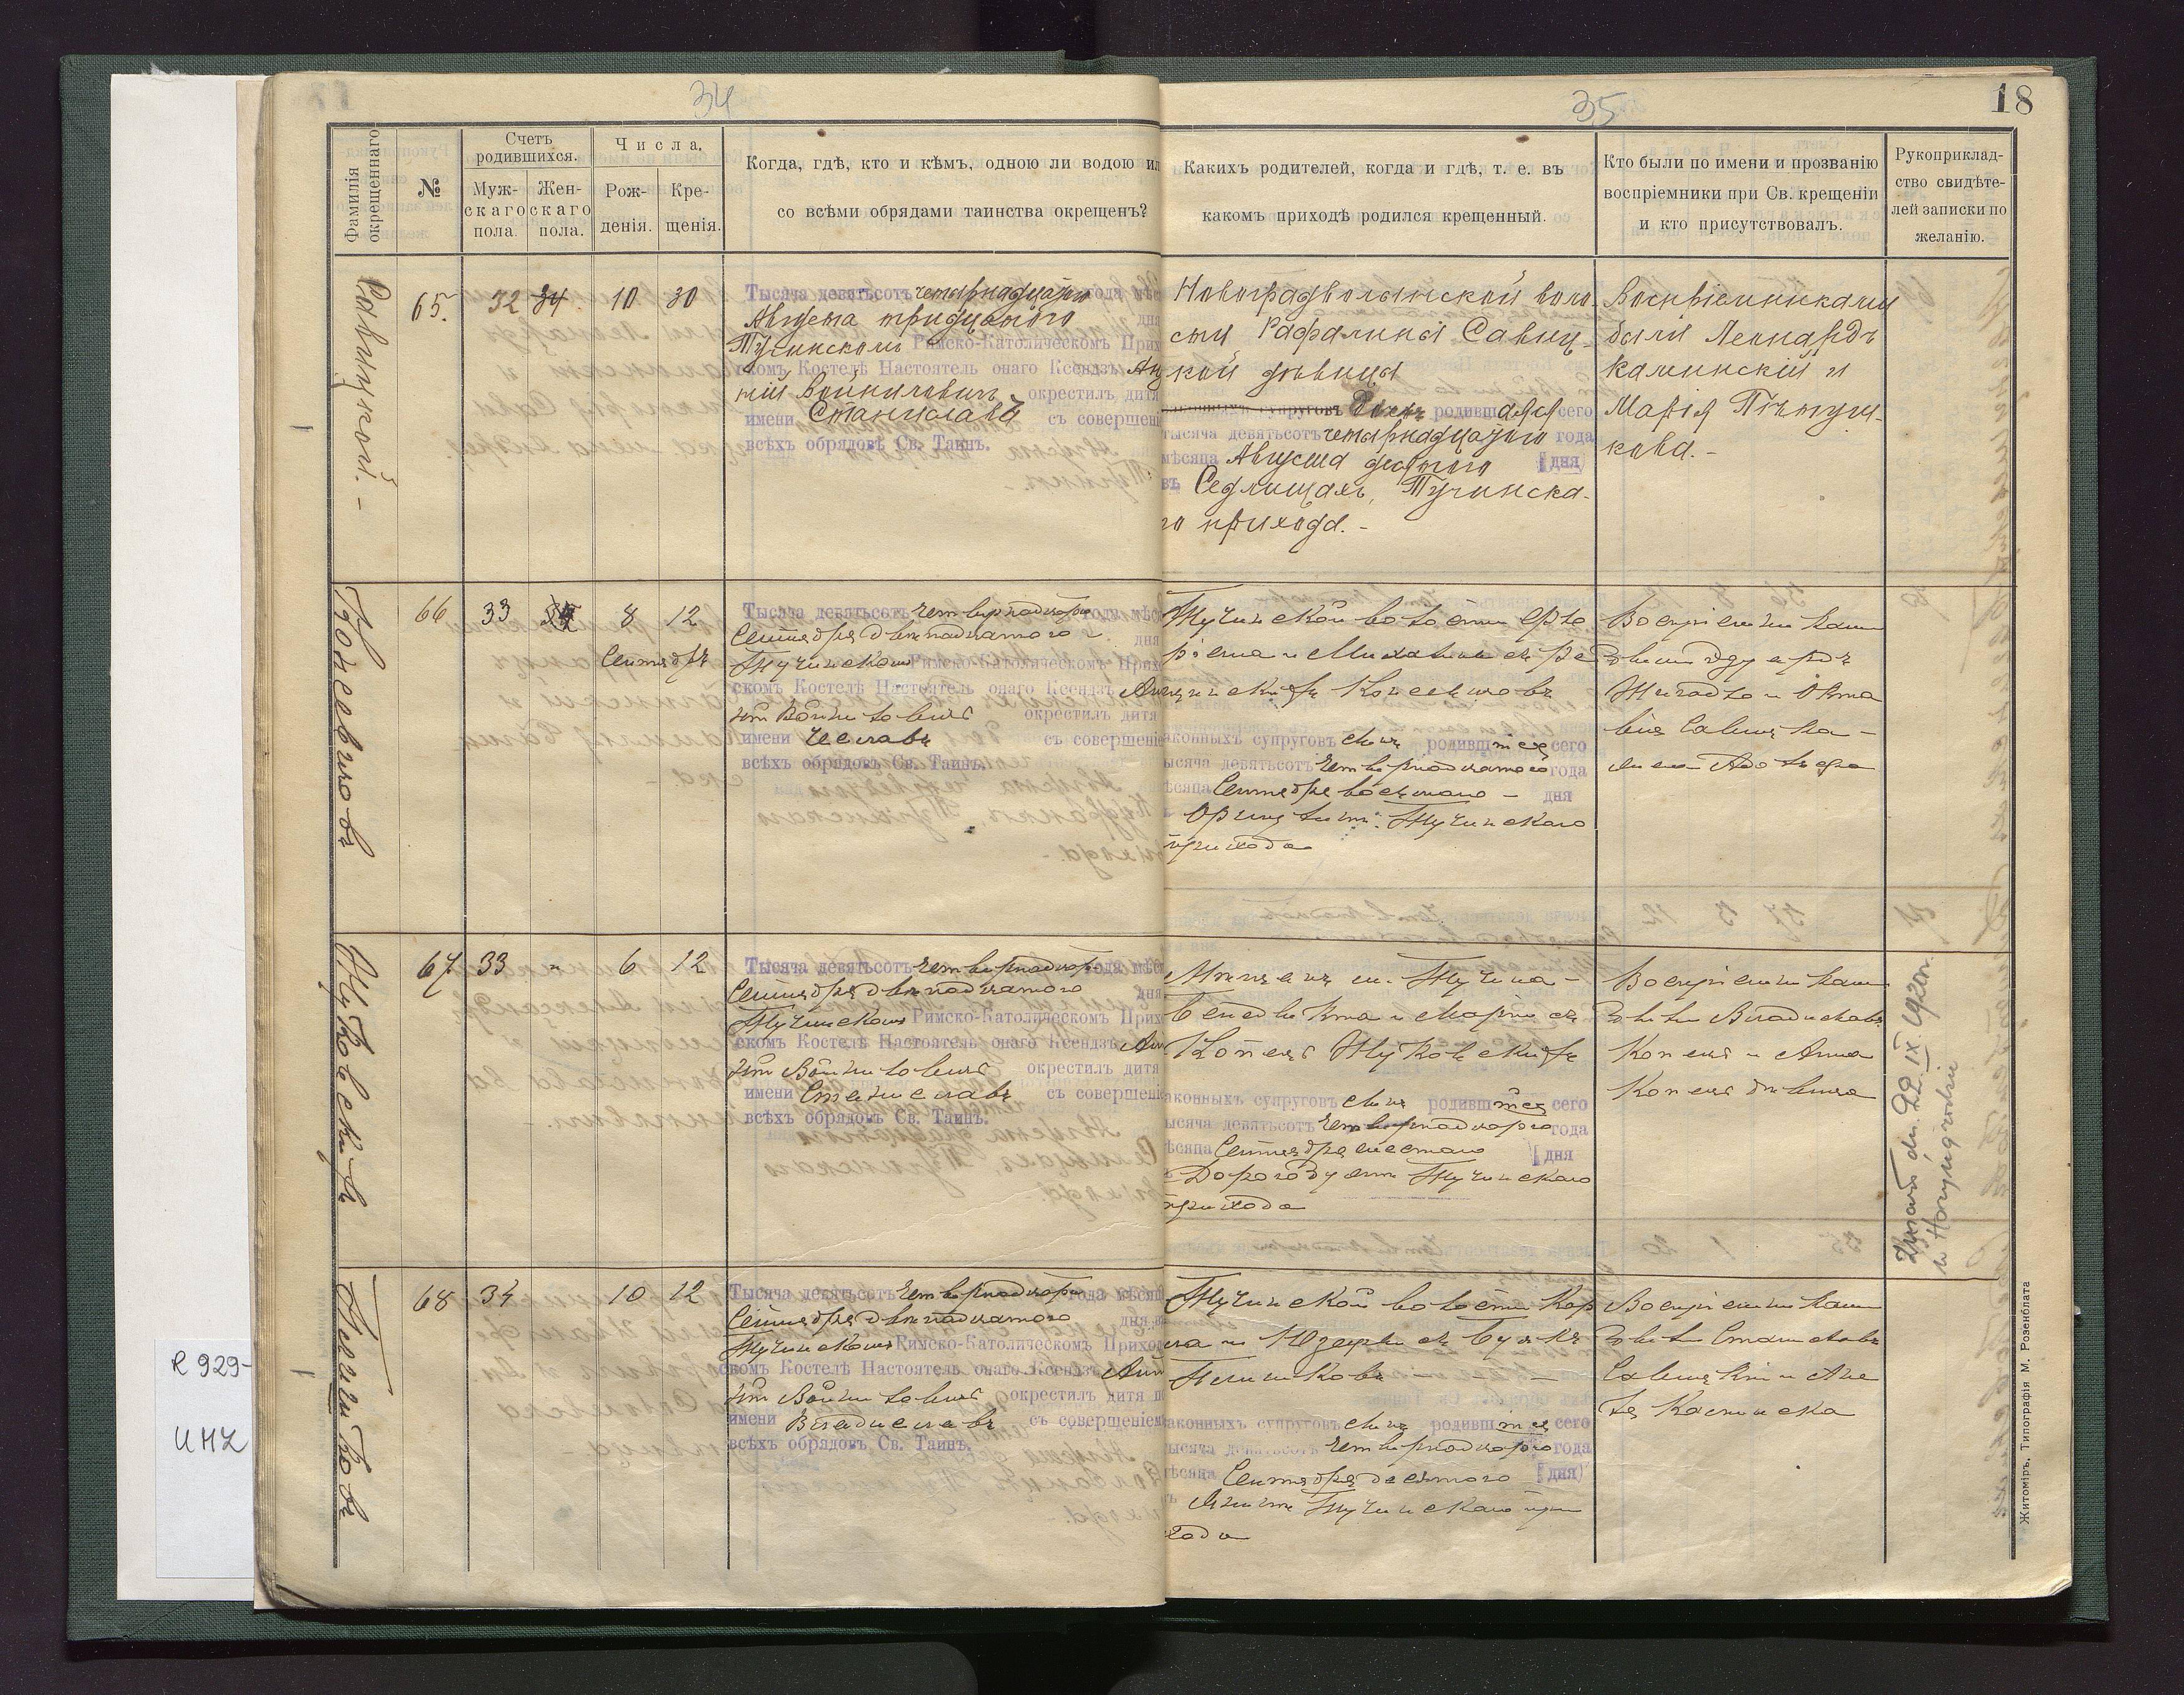 34
35
18
Фамилія окрещеннаго
№
Счетъ родившихся.
Мужскаго пола.
Женскаго пола.
Числа.
Рожденія.
Крещенія.
Когда, гдѣ, кто и кѣмъ, одною ли водою ил
со всѣми обрядами таинства окрещенъ?
Какихъ родителей, когда и гдѣ, т. е. въ
какомъ приходѣ родился крещенный.
Кто были по имени и прозванію
воспріемники при Св. крещеніи
и кто присутствовалъ.
Рукоприклад-
ство свидѣте-
лей записки по
желанію.
Савицкой. -
65. 32 34 10 30
Тысяча девятьсотъ четырнадцатого года мѣс
Августа тридцатого дня
Тучинскомъ Римско-Католическомъ Прих
скомъ Костелѣ Настоятель онаго Ксендзъ Ан
тій Войниловичъ окрестилъ дитя
имени Станиславъ съ совершені
всѣхъ обрядовъ Св. Таинъ.
Новоградволынской воло-
сти Рафалины Савиц-
кой дѣвицы
законныхъ супруговъ родивш сего
тысяча девятьсотъ четырнадцатого года
мѣсяца Августа десятого дня
въ Седлищахъ, Тучинска-
го прихода. -
Воспріемниками
были Леонардъ
Каминскій и
Марія Пѣтуш-
кова. -
66 33 8 12
Сентябрь
Тысяча девятьсотъ четырнадцаго года мѣс
Сентября двѣнадцатого дня
Тучинскомъ Римско-Католическомъ Прихо
скомъ Костелѣ Настоятель онаго Ксендзъ Ан
тій Войниловичъ окрестилъ дитя
имени Чеславъ съ совершеніе
всѣхъ обрядовъ Св. Таинъ.
Тучинской волости Фло
ріана и Михалины съ
законныхъ супруговъ сынъ родившійся сего
тысяча девятьсотъ четырнадцатого года
мѣсяца Сентября восьмого - дня
Тучинского
прихода
Воспріемниками
были Эдуардъ
и Окта
вія Савицка -
Жуковскихъ
67 33 " 6 12
Тысяча девятьсотъ четырнадцаго года мѣс
Сентября двѣнадцатого дня
Тучинскомъ Римско-Католическомъ Прих
скомъ Костелѣ Настоятель онаго Ксендзъ Ан
тій Войниловичъ окрестилъ дитя
имени Станиславъ съ совершені
всѣхъ обрядовъ Св. Таинъ.
Мѣщанъ м. Тучина -
Бенедикта и Маріи съ
Копечъ Жуковскихъ
законныхъ супруговъ сынъ родившійся сего
тысяча девятьсотъ четырнадцаго года
мѣсяца Сентября шестого дня
Тучинского
прихода
Воспріемниками
были Владиславъ
Копечъ и Анна
Копечъ дѣвица
22 IX 1920 r.
68 34 10 12
Тысяча девятьсотъ четырнадцаго года мѣсяц
Сентября двѣнадцатого дня
Тучинскомъ Римско-Католическомъ Прихо
скомъ Костелѣ Настоятель онаго Ксендзъ Ан
тій Войниловичъ окрестилъ дитя
имени Владиславъ съ совершеніем
всѣхъ обрядовъ Св. Таинъ.
Тучинской волости Кар
и Юзефы съ
законныхъ супруговъ сынъ родившійся сего
тысяча девятьсотъ четырнадцаго года
мѣсяца Сентября десятого дня
Тучинского при
хода
Воспріемниками
были Станиславъ
Савицкій и Ане
ля
Житоміръ, Типографія М. Розенблата
R 929-
UMZ